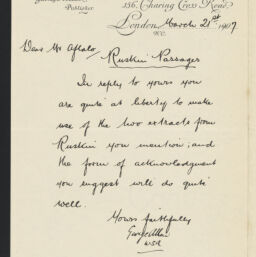 Publisher.
156, Charing Cross Road,
London, March 21st 1907
W.C.
Dear Mr Aflalo,
Ruskin Passages
In reply to yours you
are quite at liberty to make
use of the two extracts from
Ruskin you mention; and
the form of acknowledgment
you suggest will do quite
well.
Yours faithfully
George Allen